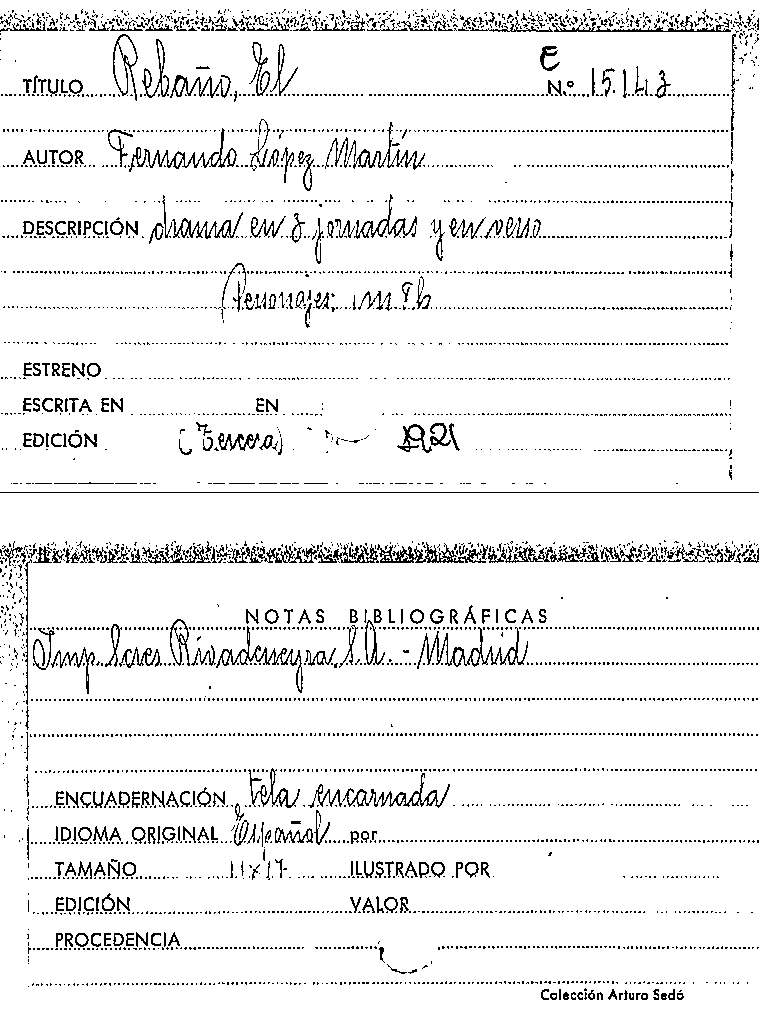 TÍTULO Rebaño, El E
N.º 15.143
AUTOR Fernando López Martín
DESCRIPCIÓN drama en 3 jornadas y en verso
Personajes:
ESTRENO
ESCRITA EN EN
EDICIÓN (Tercera) 1921
NOTAS BIBLIOGRÁFICAS
Imp. Scres Rivadeneyra, S.A. - Madrid
ENCUADERNACIÓN tela encarnada
IDIOMA ORIGINAL Español por
TAMAÑO 11x17 ILUSTRADO POR
EDICIÓN VALOR
PROCEDENCIA
Colección Arturo Sedó